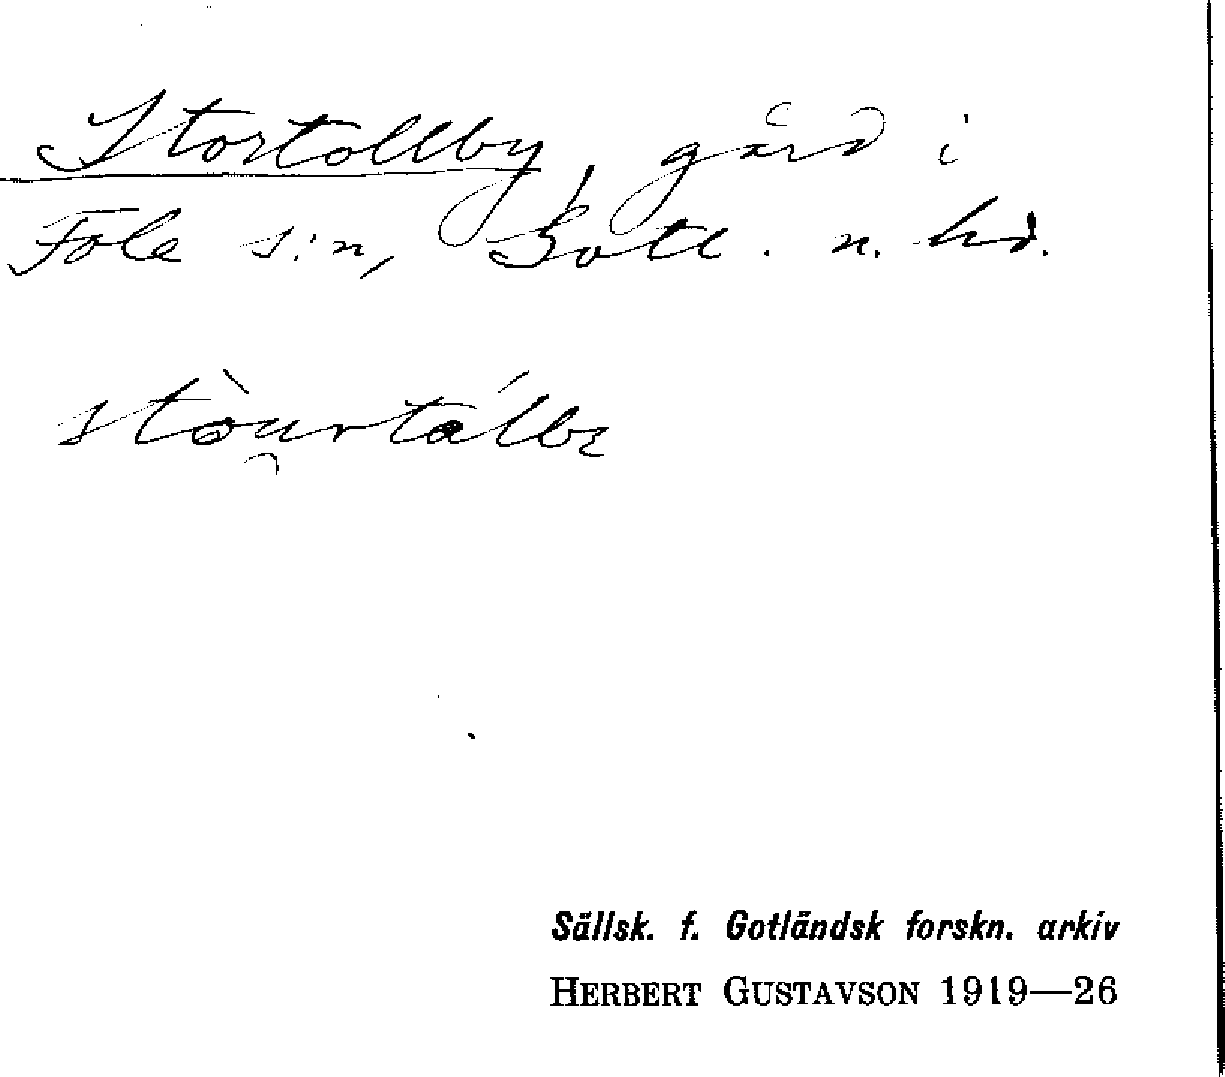 Stortollby, gård i
Fole s:n, Gotl. n. hd.
stòu̯rtálbe
Sällsk. f. Gotländsk forskn. arkiv
HERBERT GUSTAVSON 1919—26